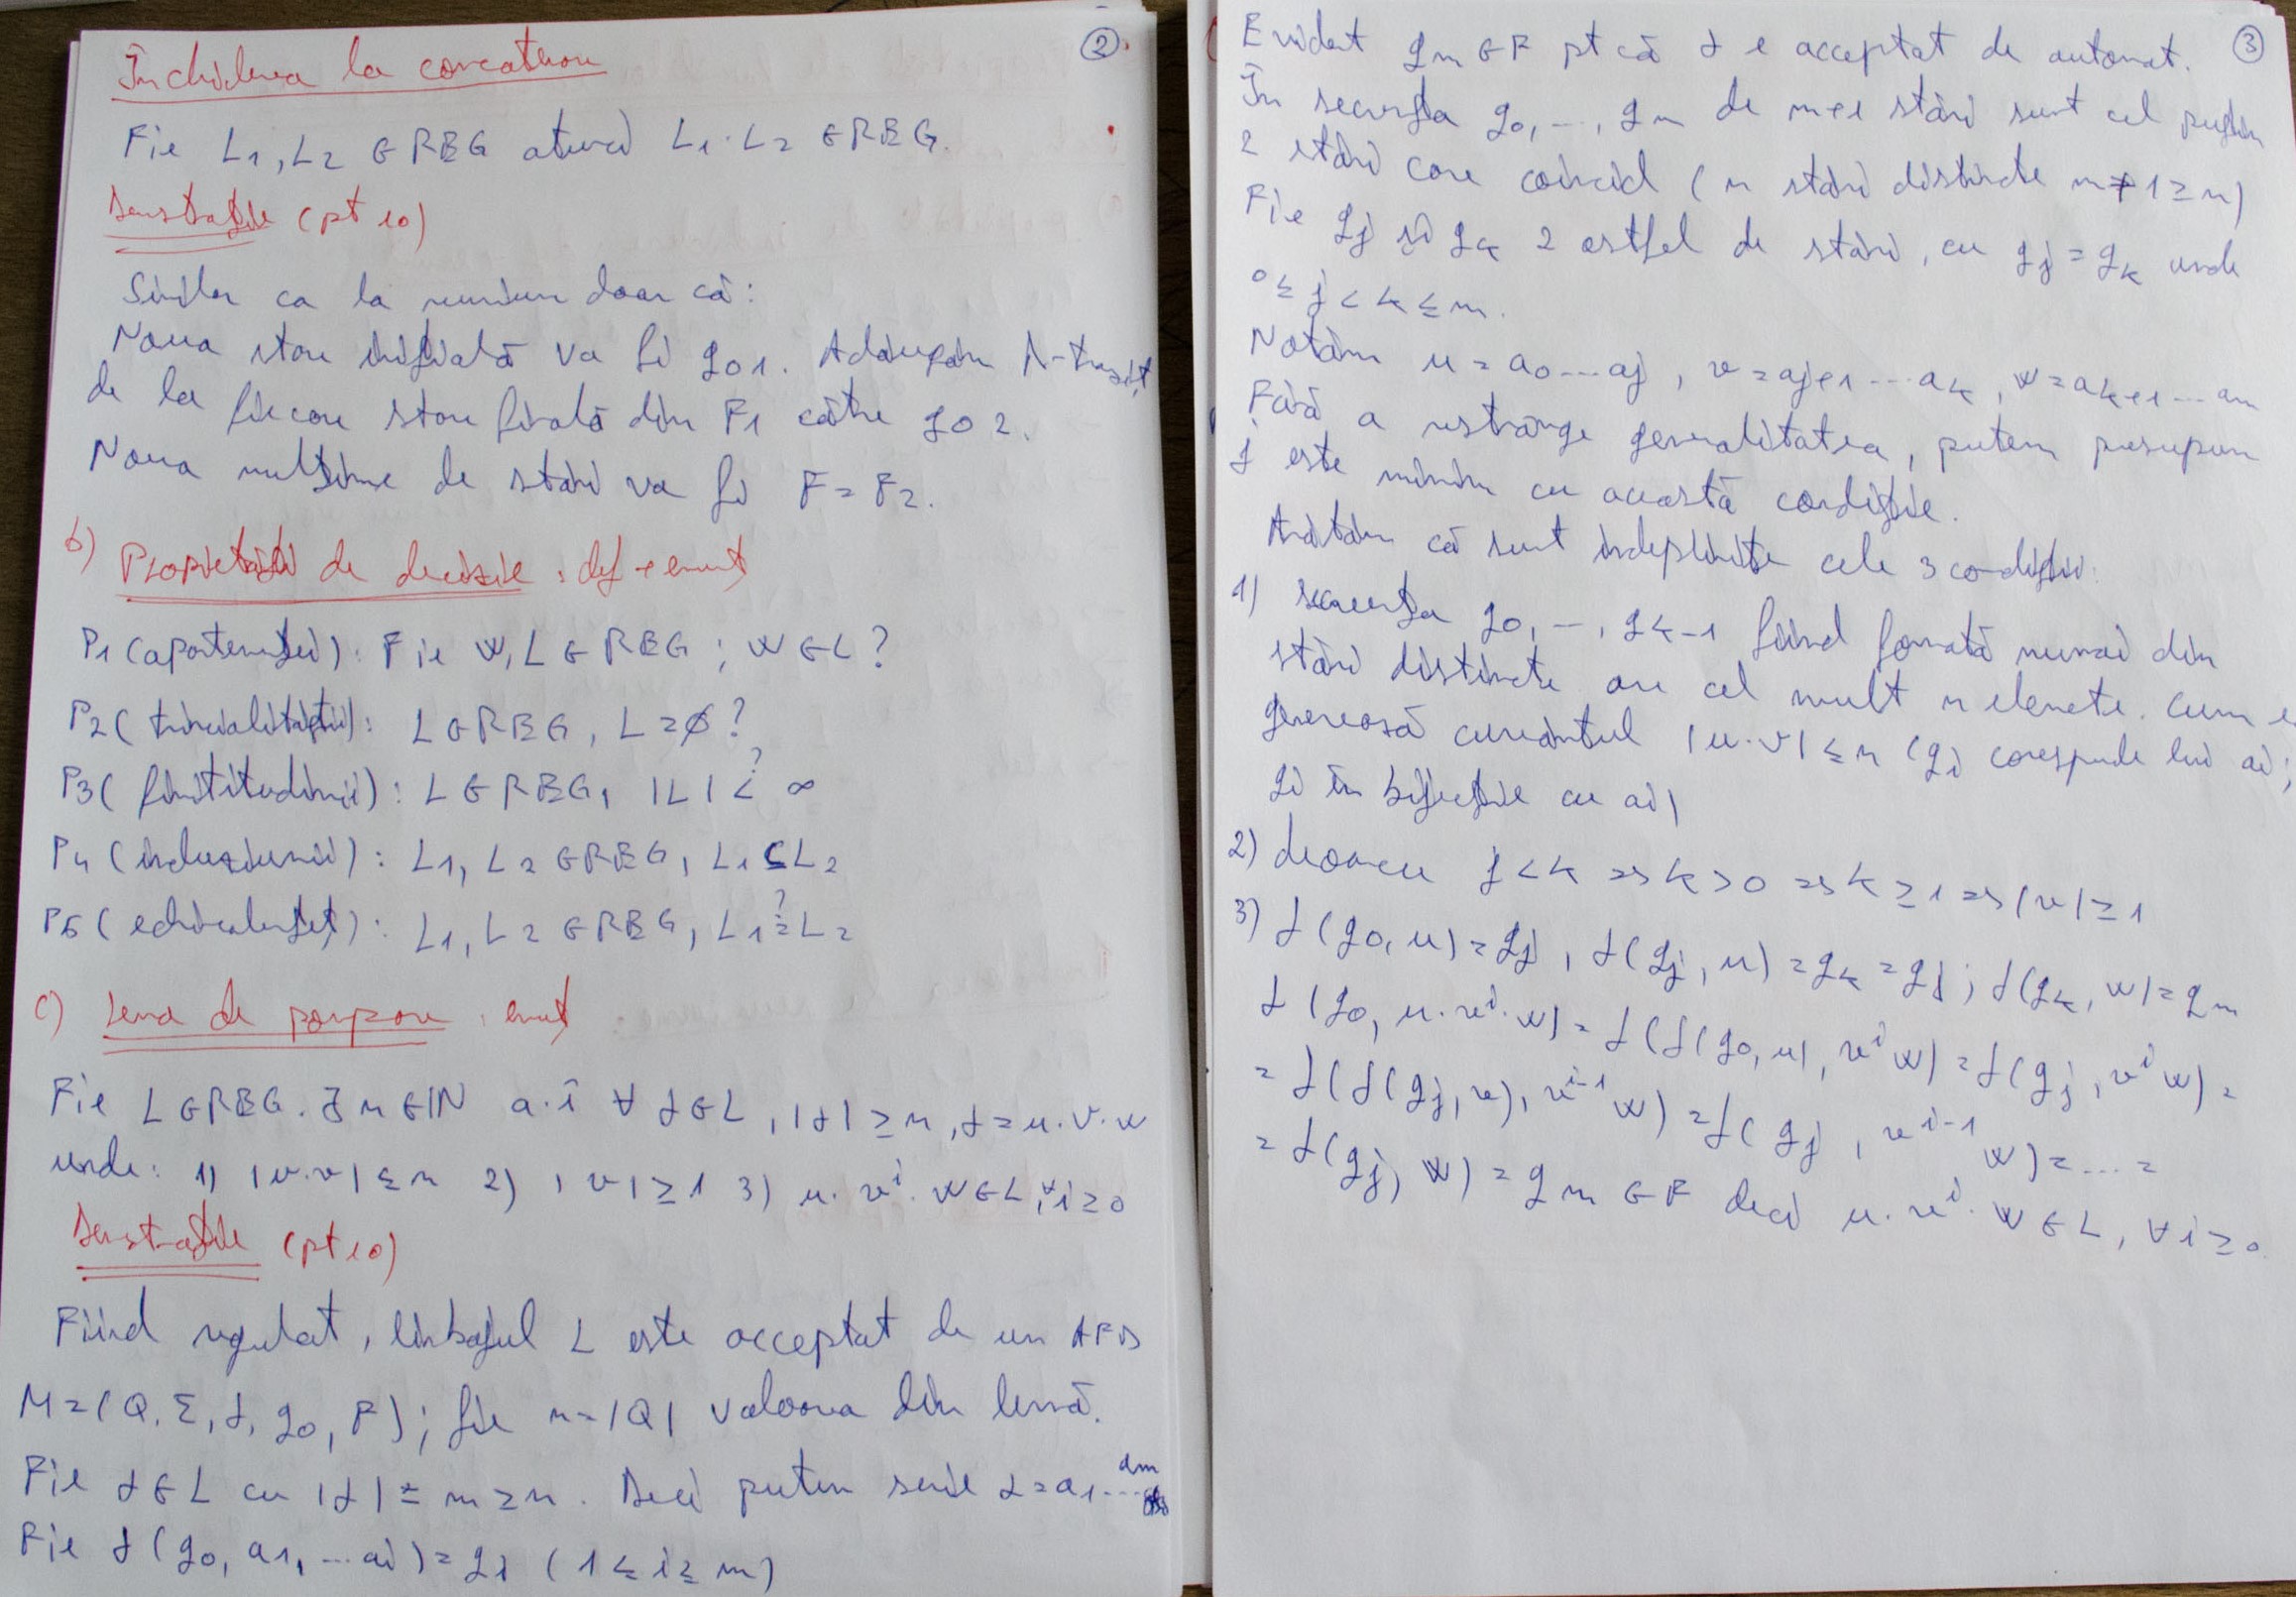 ②
Închiderea la concatenare
Fie L1, L2 ∈ REG atunci L1·L2 ∈ REG.
Demstrație (pt 10)
Similar ca la reuniune doar că:
Noua stare inițială va fi q01. Adăugăm λ-tranzit
de la fiecare stare finală din F1 către q02.
Noua mulțime de stări va fi F = F2.
b) Proprietăți de decizie : def + enunț
P1 (apartenenței): Fie w, L ∈ REG ; w ∈ L ?
P2 (trivialității): L ∈ REG, L = ∅ ?
P3 (finititudinii): L ∈ REG, |L| <? ∞
P4 (incluziunii): L1, L2 ∈ REG, L1 ⊆ L2
P5 (echivalenței): L1, L2 ∈ REG, L1 =? L2
c) Lema de pompare : enunț
Fie L ∈ REG. ∃ n ∈ ℕ a.î ∀ α ∈ L, |α| ≥ n, α = u·v·w
unde: 1) |u·v| ≤ n 2) |v| ≥ 1 3) u·v^i·w ∈ L, ∀i ≥ 0
Demstrație (pt 10)
Fiind regulat, limbajul L este acceptat de un AFD
M = (Q, Σ, δ, q0, F); fie n = |Q| valoarea din lemă.
Fie α ∈ L cu |α| = m ≥ n. Deci putem scrie α = a1...am
Fie δ(q0, a1, ...ai) = qi (1 ≤ i ≥ m)
③
Evident qm ∈ F pt că α e acceptat de automat.
În secvența q0, ..., qm de m+1 stări sunt cel puțin
2 stări care coincid (n stări distincte m+1 ≥ n)
Fie qj și qk 2 astfel de stări, cu qj = qk unde
0 ≤ j < k ≤ m.
Notăm u = a0...aj, v = aj+1...ak, w = ak+1...am
Fără a restrânge generalitatea, putem presupune
j este minim cu această condiție.
Arătăm că sunt îndeplinite cele 3 condiții:
1) secvența q0, ..., qk-1 fiind formată numai din
stări distincte are cel mult n elemente. Cum e
generează cuvântul |u·v| ≤ n (qi corespunde lui ai;
qi în bijecție cu ai)
2) deoarece j < k => k > 0 => k ≥ 1 => |v| ≥ 1
3) δ(q0, u) = qj, δ(qj, u) = qk = qj; δ(qk, w) = qm
δ(q0, u·v^i·w) = δ(δ(q0, u), v^i w) = δ(qj, v^i w) =
= δ(δ(qj, v), v^i-1 w) = δ(qj, v^i-1 w) = ... =
= δ(qj, w) = qm ∈ F deci u·v^i·w ∈ L, ∀i ≥ 0